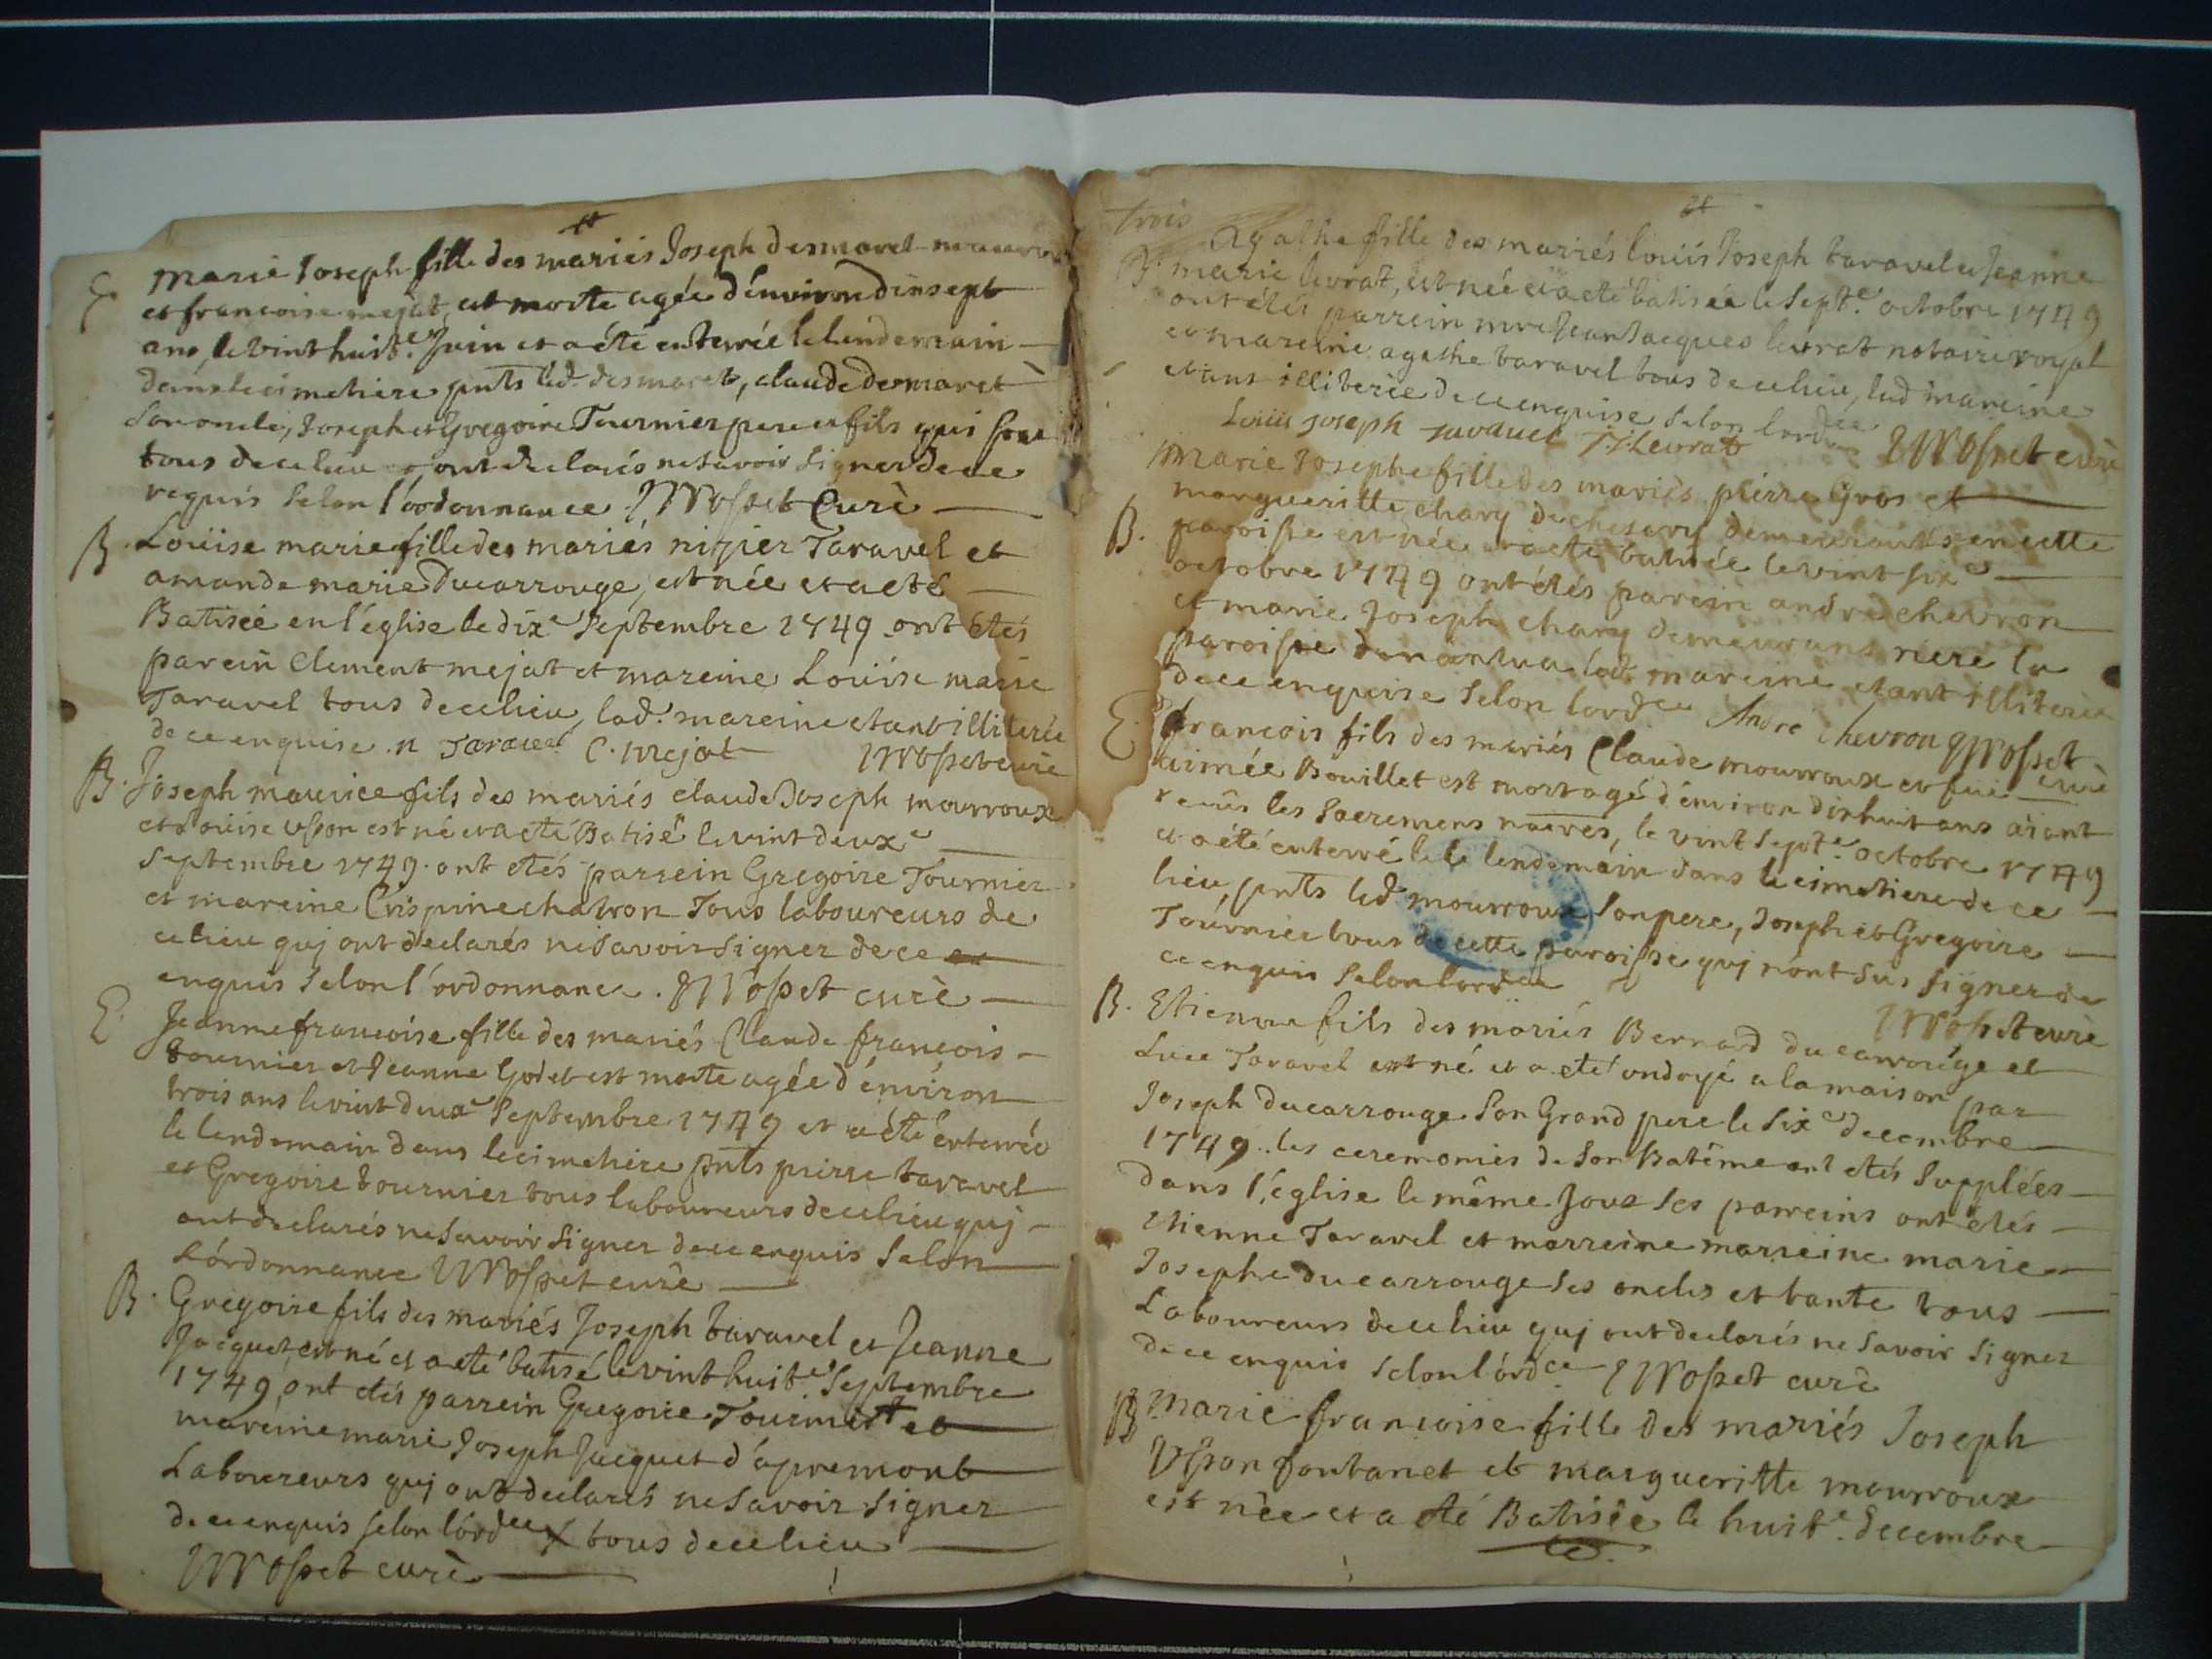 E marie Joseph fille des mariés Joseph desmaret
et francoise mejat, est morte agée d'environ dixsept
ans, le vint huit.e Juin et a été enterrée le lendemain
dans le cimetiere pnts led. desmaret, claude desmaret
son oncle, Joseph et Gregoire Tournier pere et fils qui sont
tous de ce lieu et ont declarés ne savoir signer de ce
requis selon l'ordonnance. Mospet Curè
B. Loüise marie fille des mariés nizier Taravel et
amande marie Ducarrouge, est née et a eté
Batiseé en l'église le dix.e Septembre 1749 ont étés
parein Clement mejat et mareine Louïse marie
Taravel tous de ce lieu, lad. mareine etant illiterée
de ce enquise. n Taravel C. mejat Mospet curè
B. Joseph maurice fils des mariés claude Joseph mourroux
et Loüise Uson est né et a eté Batisé le vint deux.e
Septembre 1749. ont etés parrein Gregoire Tournier
et mareine Crispine chatron Tous laboureurs de
ce lieu quj ont declarés ne savoir signer de ce
enquis selon l'ordonnance. Mospet curè
E. Jeanne francoise fille des mariés Claude françois
tournier et Jeanne Godet est morte agée d'énviron
trois ans le vint deux.e Septembre 1749 et a été enterrée
le lendemain dans le cimetiere pnts pierre taravel
et Gregoire tournier tous laboureurs de ce lieu quj
ont declarés ne savoir signer de ce enquis selon
l'órdonnance Mospet curè
B. Gregoire fils des mariés Joseph taravel et Jeanne
Jacquet, est né et a eté batisé le vint huit.e Septembre
1749, ont etés parrein Gregoire Tournier et
mareine marie Joseph Jacquet d'ápremont
Laboureurs quj ont declarés ne savoir signer
de ce enquis selon lórdce X tous de ce lieu
Mospet curè
trois
B. agathe fille des mariés louïs Joseph taravel et Jeanne
marie levrat, est née et a eté batisée le Sept.e octobre 1749
ont étés parrein mre Jean Jacques levrat notaire royal
et mareine agathe taravel tous de ce lieu, lad mareine
etant illiterée de ce enquise selon lordce
Louis joseph taravel JJ. Levrat Mospet curè
Marie Josephe fille des mariés pierre Gros et
margueritte chary de chesery demeurants en cette
B. paroisse est née et a eté batisée le vint six.e
octobre 1749 ont étés parein andré chevron
et marie Joseph chary demeurans riere la
paroisse de nantua lad. mareine etant illiterée
de ce enquise selon lordce André chevron Mospet curè
E. françois fils des mariés Claude mourroux et feüe
aimée Bouillet est mort agé d'énviron dixhuit ans aïant
reçûs les Sacremens, le vint sept.e octobre 1749
et a été enterré le le lendemain dans le cimetiere de ce
lieu, pnts led mourroux son pere, Joseph et Gregoire
Tournier tous de cette paroisse quj n'ont sus signer de
ce enquis selon lordce Mospet curè
B. Etienne fils des mariés Bernard ducarrouge et
Luce Taravel est né et a eté ondoyé a la maison par
Joseph ducarrouge Son Grand pere le six.e decembre
1749. les ceremonies de son Batême ont etés Supplées
dans l'église le même Jour ses parreins ont étés
etienne Taravel et marreine marreine marie
Josephe ducarrouge ses oncles et tante tous
Laboureurs de ce lieu quj ont declarés ne savoir signer
de ce enquis selon lórdce Mospet curè
B. marie francoise fille des mariés Joseph
Uson fontanet et margueritte mourroux
est née et a eté Batisée le huit.e decembre